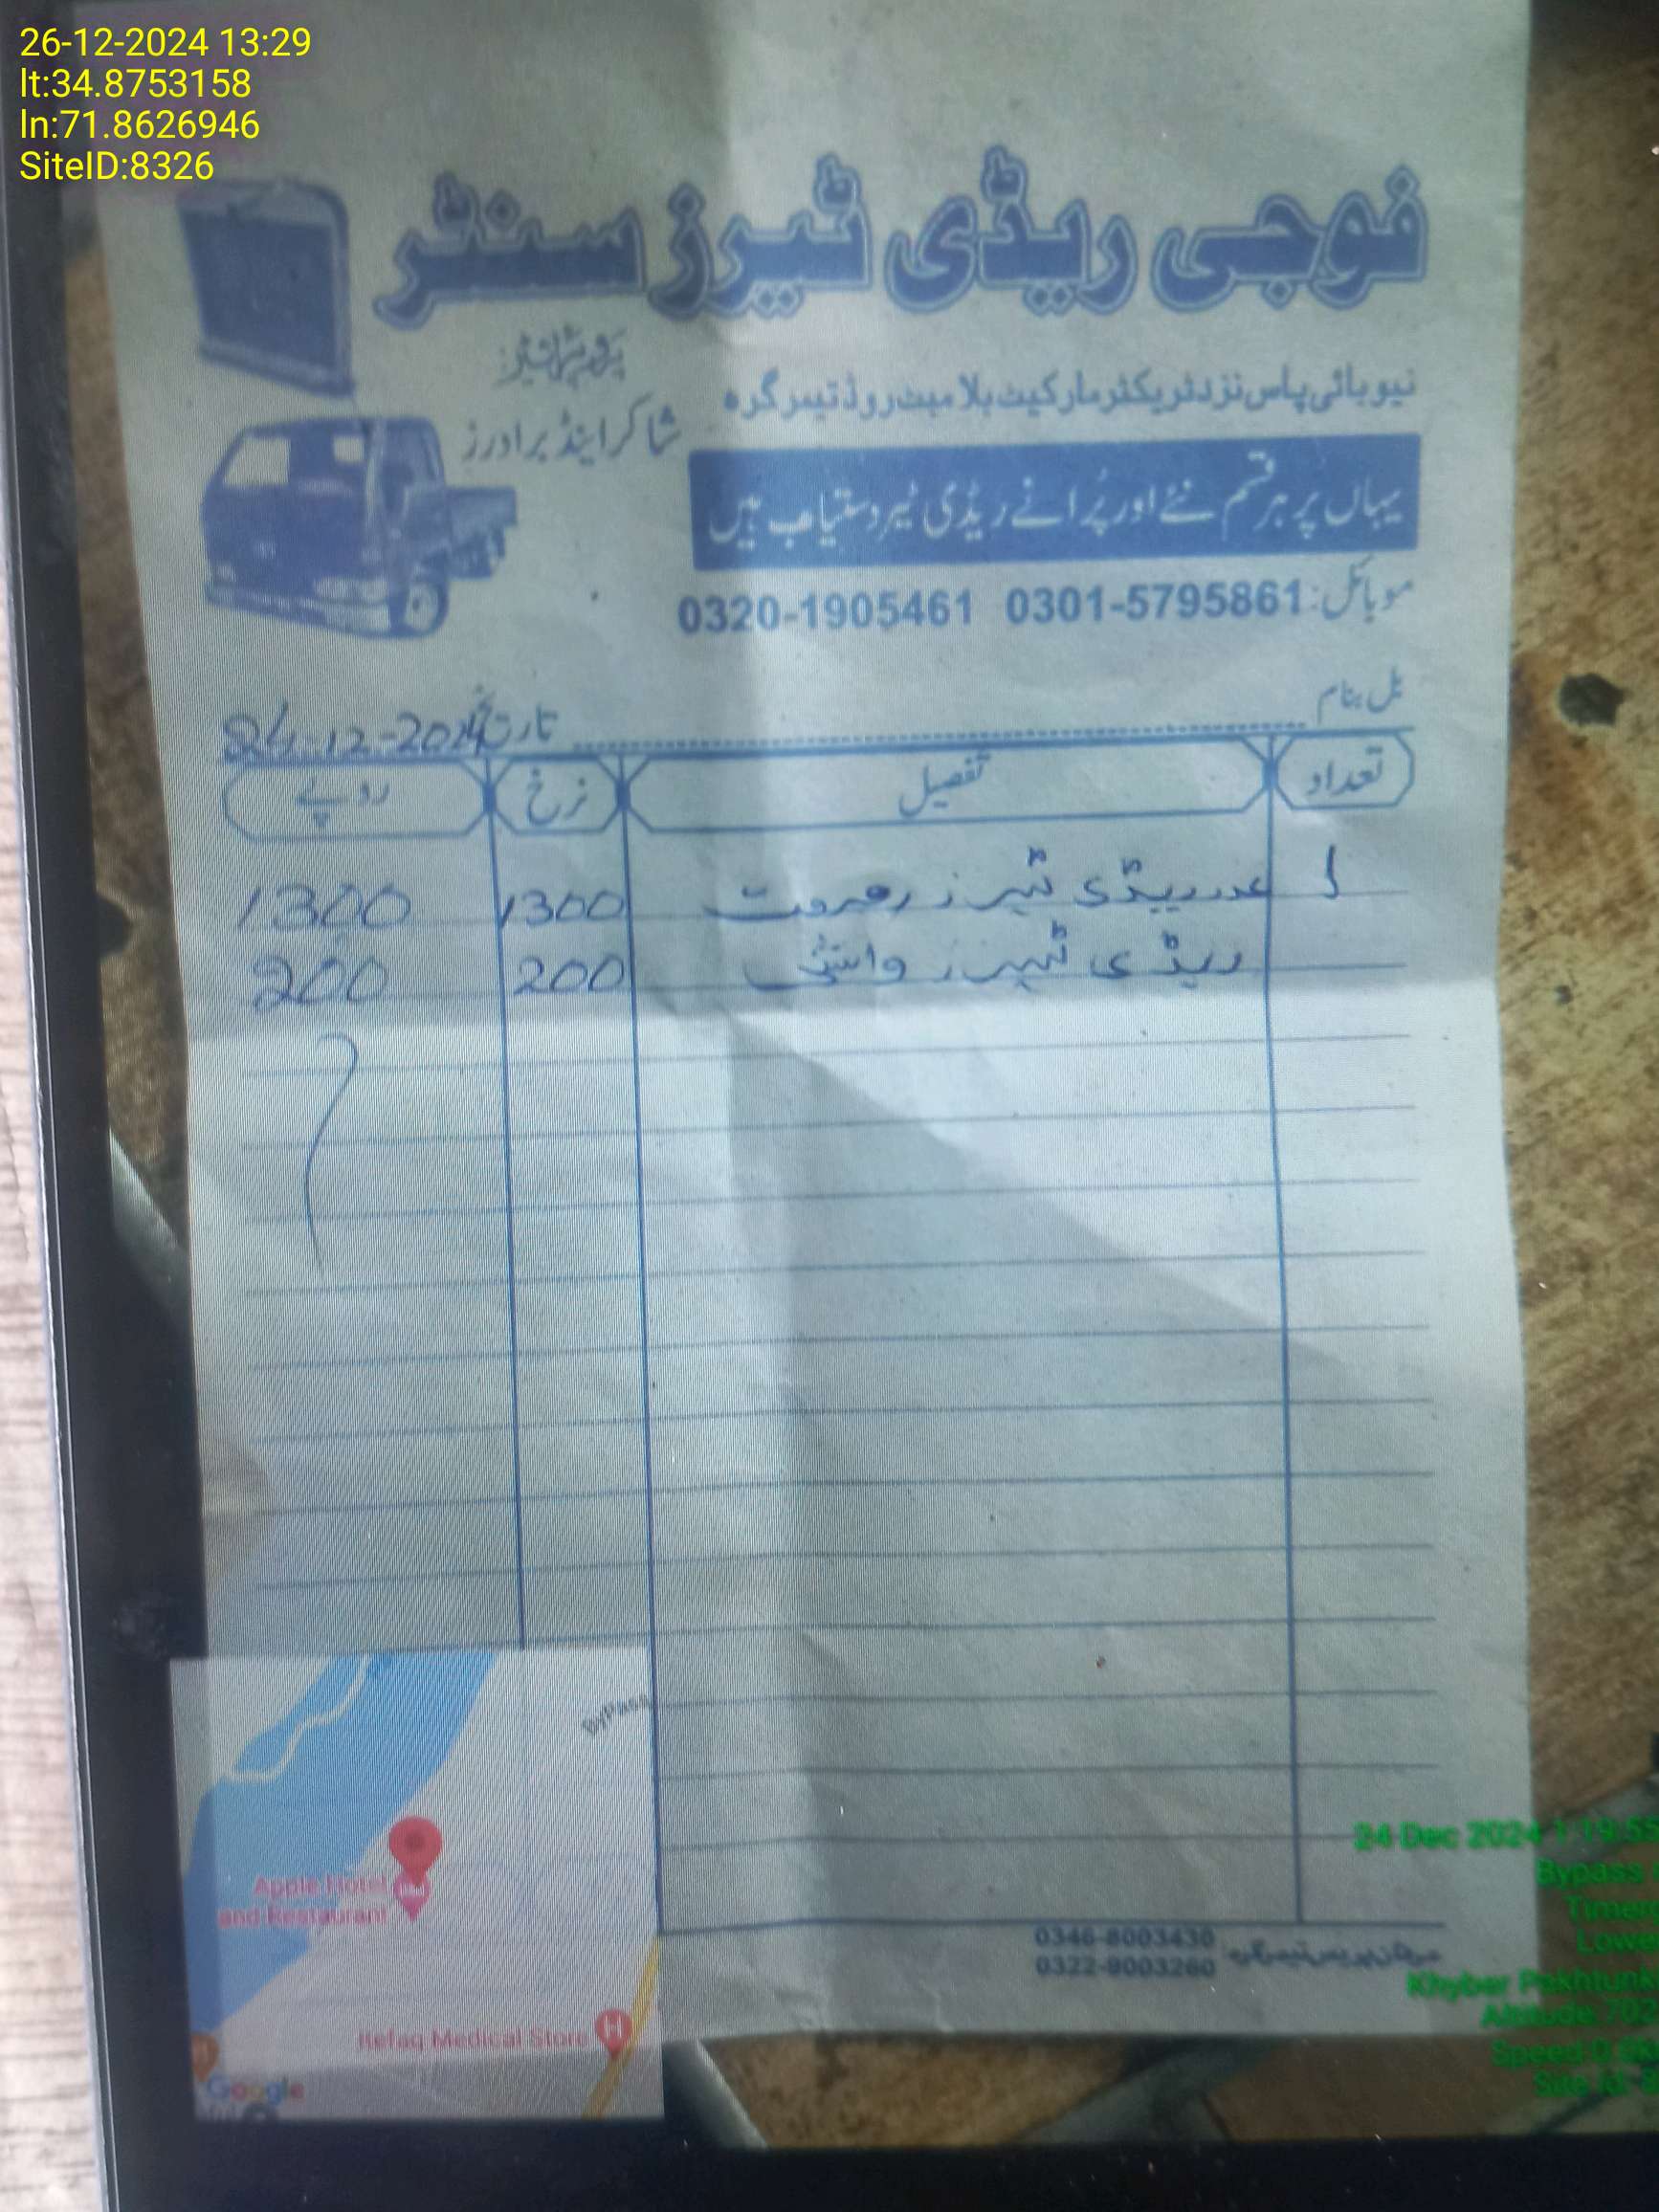 26-12-2024 13:29
lt:34.8753158
ln:71.8626946
SiteID:8326
فوجی ریڈی ٹیرز سنٹر
پروپرائیٹرز
شاکر اینڈ برادرز
نیو بائی پاس نزد ٹریکٹر مارکیٹ بلامبٹ روڈ تیمرگرہ
یہاں پر ہر قسم نئے اور پُرانے ریڈی ٹیر دستیاب ہیں
موبائل: 0301-5795861 0320-1905461
بل بنام
تاریخ 24-12-2024
تعداد تفصیل نرخ روپے
1 عدد ریڈی ٹیرز 1300 1300
ریڈی ٹیرز واش 200 200
ByPass
Apple Hotel
and Restaurant
Refaq Medical Store
Google
0346-8003430
0322-8003260
24 Dec 2024 1:19:55
Bypass
Timerg
Lowe
Khyber Pakhtunk
Altitude:702
Speed:0.
Site id: